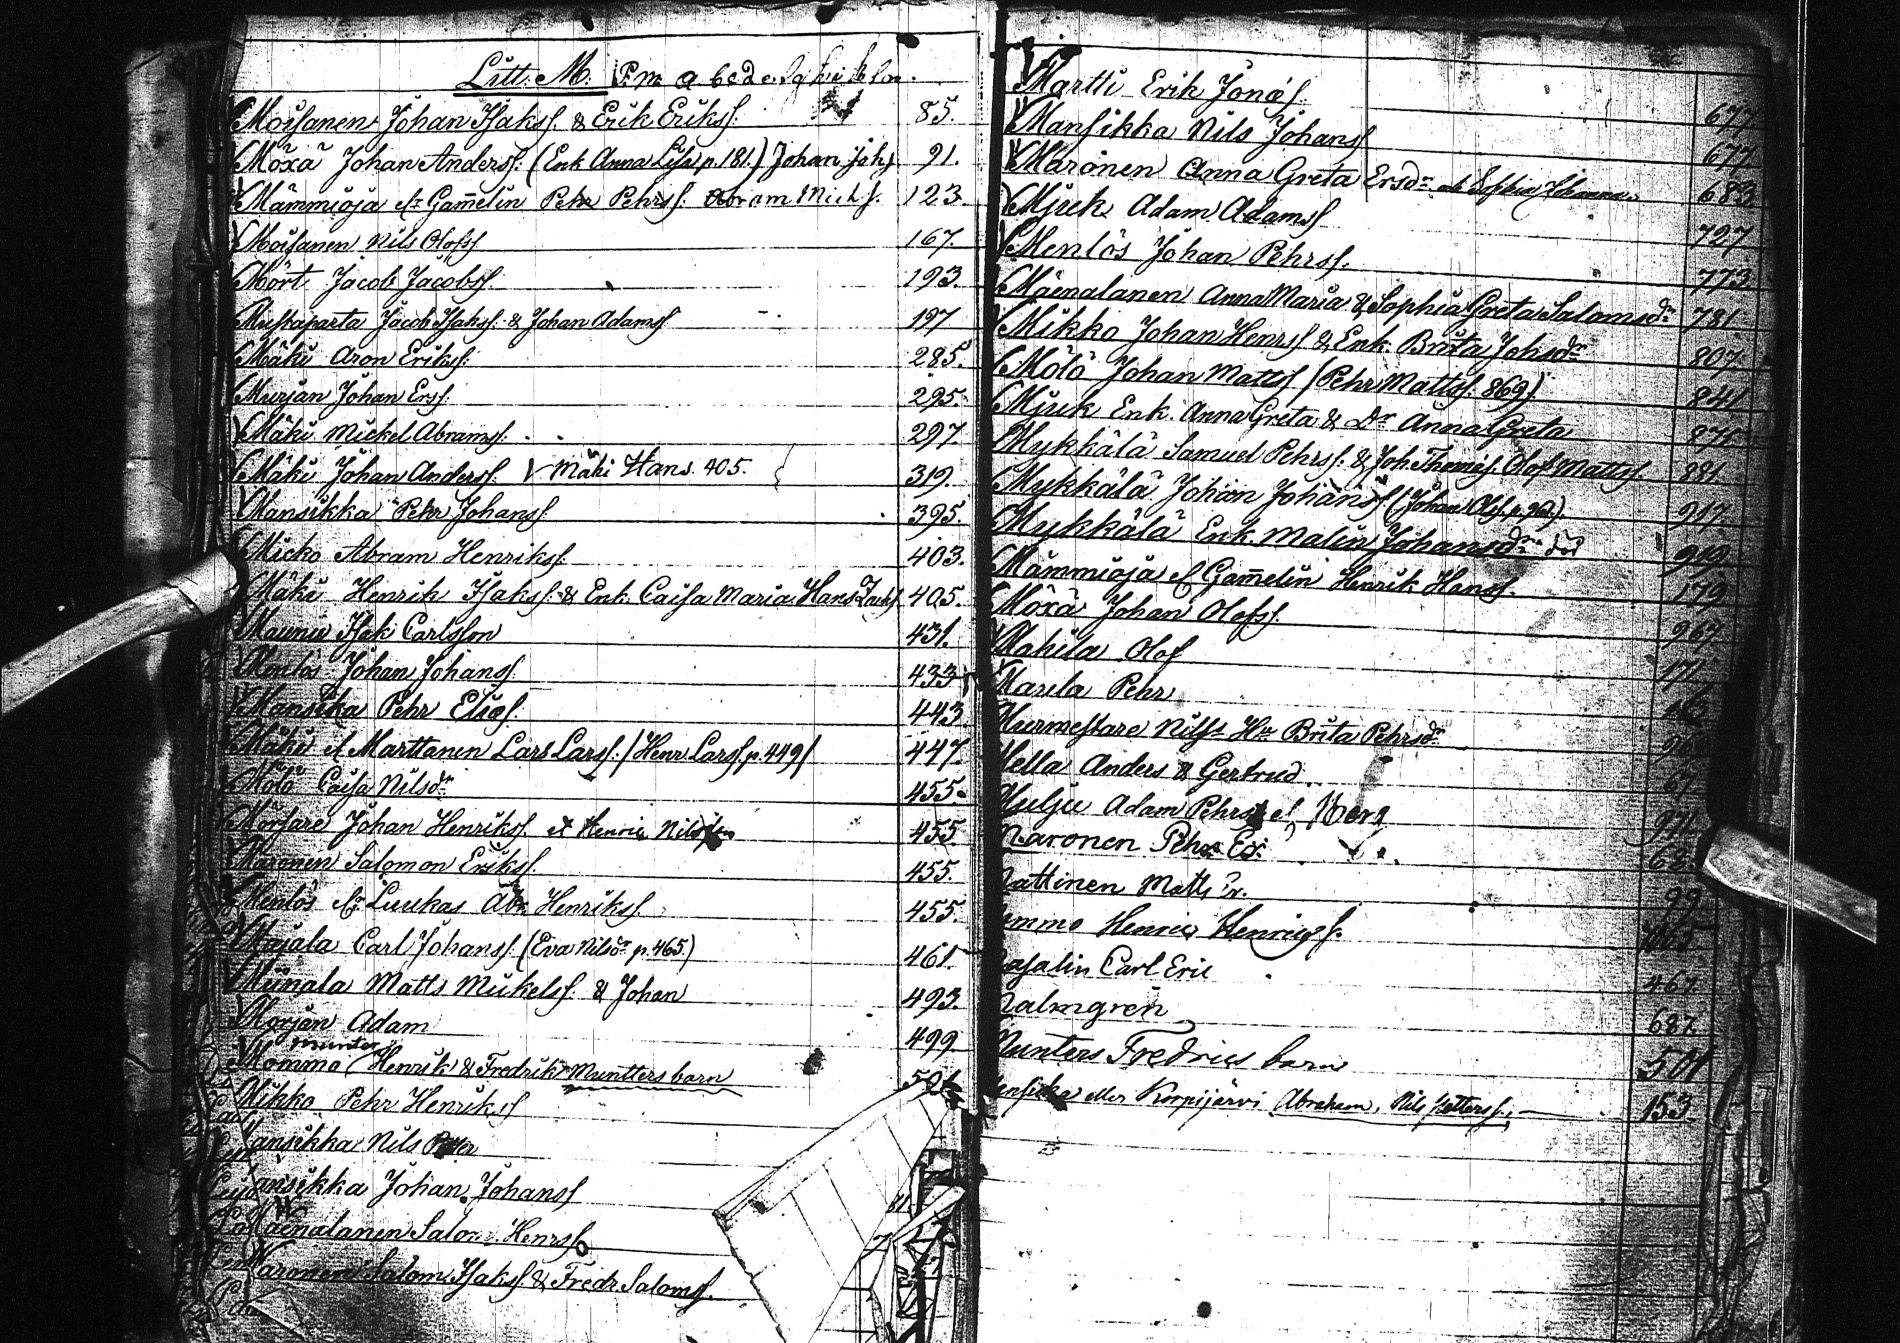 Litt. M. P.m. a b c d e f g h i k l m.
Moisanen Johan Isaks. & Erik Eriks. 85.
Möxä Johan Anders. (Enk. Anna Lisa p. 181.) Johan Joh. 91.
Mämmioja el. Gam̄elin Pehr Pehrss. Abram Mich s. 123
Moisanen Nils Olofss. 167.
Mört Jacob Jacobss. 193.
Mustaparta Jacob Isaks. & Johan Adams. 197
Mäki Aron Erikss. 285.
Murjan Johan Ers. 295.
Mäki Mickel Abramss. 297
Mäki Johan Anderss. Mäki Hans. 405. 319.
Mansikka Pehr Johanss. 395.
Micko Abram Henrikss. 403.
Mäki Henrik Isaks. & Enk. Caisa Maria. Hans Zach s. 405.
Maunu Isak Carlsson 431.
Menlös Johan Johanss. 433
Mansikka Pehr Elias. 443
Mäki el Marttanen Lars Larss. / Henr. Larss. p. 449 / 447.
Mölö Caisa Nilsdr. 455.
Mörsare Johan Henrikss. Henric Nilsson 455.
Maronen Salomon Erikss. 455.
Menlös el. Luukas Abr. Henrikss. 455.
Majala Carl Johanss. (Eva Nilsdr. p. 465.) 461.
Miinala Matts Mickelss. & Johan 493.
Morjan Adam 499
Munter
Mommo (Henrik & Fredrik Muntters barn 501
Mikko Pehr Henrikss
ansikka Nils Petter
ansikka Johan Johanss
aenalanen Salom. Henrss
Maronen Salom. Isaks. & Fredr. Saloms.
Martti Erik Jonas. 677
Mansikka Nils Johans 677.
Maronen Anna Greta Ersdr. Sophia Johanna 683
Mjuk Adam Adams 727
Menlös Johan Pehrss. 773
Mäenalanen Anna Maria & Sophia Greta Salomsdr. 781
Mikko Johan Henrs & Enk. Brita Johsdr 807.
Mölö Johan Matts (Pehr Mattss. 869) 841
Mjuk Enk. Anna Greta & Dr. Anna Greta 875
Mykkälä Samuel Pehrss. & Joh. Thomas. Olof Mattss. 881
Mykkälä Johan Johans 917
Mykkälä Enk. Malin Johansdr. död 919
Mämmioja el Gam̄elin Henrik Hanss. 179
Möxä Johan Olofss. 967
Mahila Olof 171
Marila Pehr
Murmestare Nilss Hu Brita Pehrsdr.
Mella Anders & Gertrud 67
Mulju Adam Pehrs el Berg 971
Maronen Pehr Er. 68
attinen Matts
emmo Henric Henrics.
ajalin Carl Eric 467.
Malmgren 687.
Munters Fredrics barn 501
ansikka eller Korpijärvi Abraham, Nils Petterss. 153.